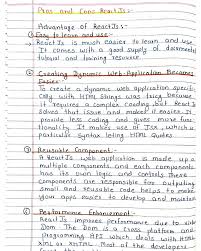 Pros and Cons ReactJs:-
Advantage of ReactJs:-
① Easy to learn and use:-
→ ReactJs is much easier to learn and use.
It comes with a good supply of
tutorial and training resource.
② Creating Dynamic Web Application Becomes
Easier:-
To create a dynamic web application specific
with HTML Strings was tricky because
it requires a complex coding but React Js
Solves that issue and makes it easier. It
provide less coding and gives more func
tionality. It makes use of JSX, which a
particular Syntax letting HTML quotes.
③ Reusable Component:-
A ReactJs web application is made up a
multiple components, and each components
has its own logic and controls. These
components are responsible for outputting
small reusable code helps to make
your apps easier to develop and maintain
④ Performance Enhancement:-
ReactJs improves performance due to
Dom. The Dom is a cross platform and
Programming API which deals with HTML
XML or XHTML. Most of the developers